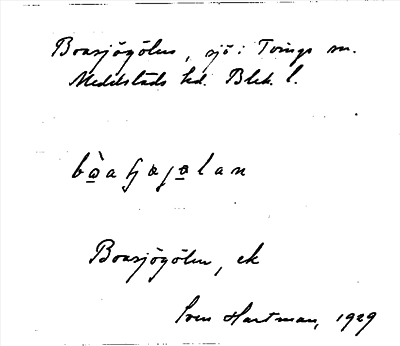 Boasjögölen, sjö i Tvings sn.
Medelstads hd. Blek. l.
Boasjögölen, ek
Sven Hartman, 1929